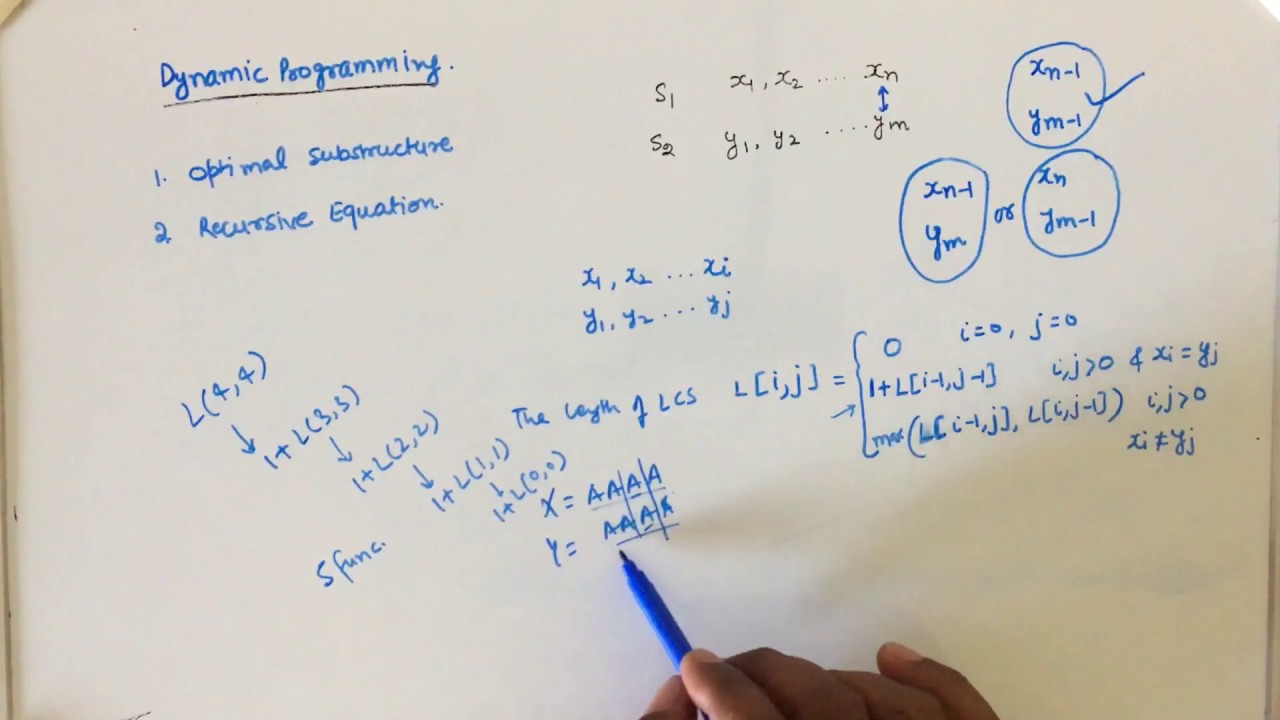 Dynamic Programming.
1. Optimal substructure
2. Recursive Equation.
S1 x1, x2 .... xn
S2 y1, y2 ....ym
xn-1
ym-1
xn-1
ym
or
xn
ym-1
x1, x2 ... xi
y1, y2 ... yj
The length of LCS L[i,j] =
0 i=0, j=0
1+L[i-1,j-1] i,j>0 & xi = yj
max(L[i-1,j], L[i,j-1]) i,j>0
xi ≠ yj
L(4,4)
1+L(3,3)
1+L(2,2)
1+L(1,1)
1+L(0,0)
5 func.
X = AAAA
Y = AAAA